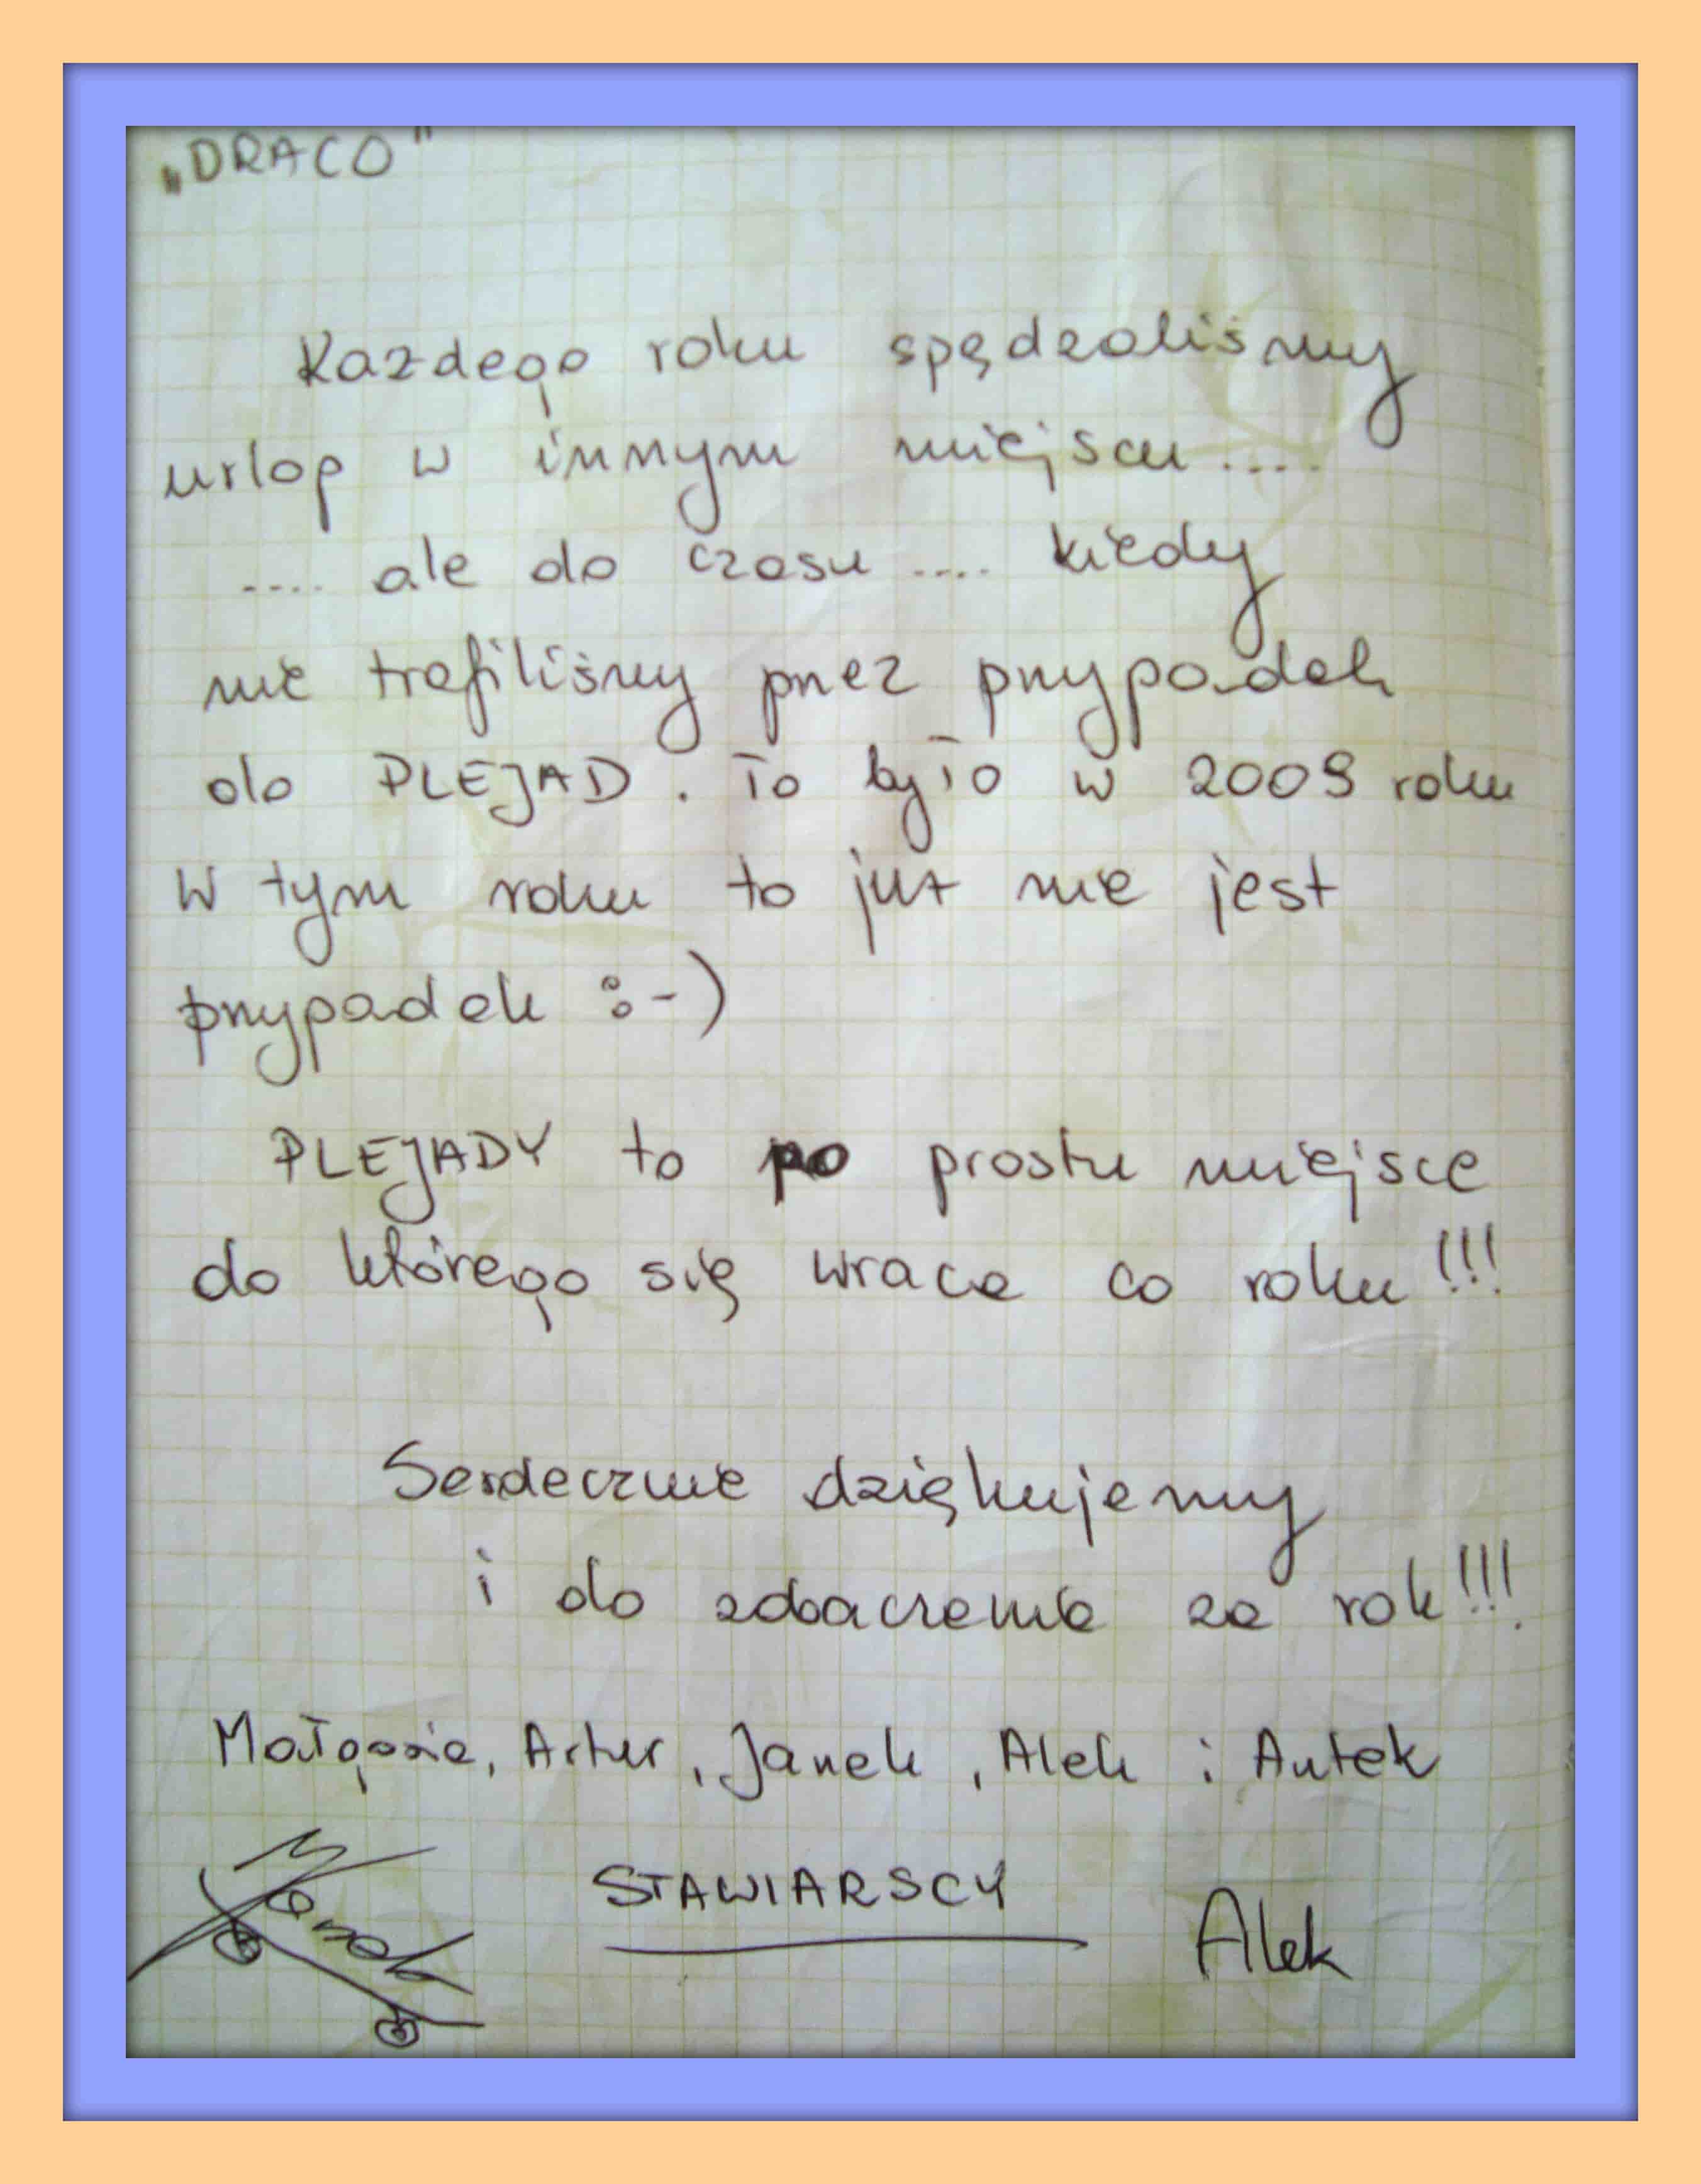 „DRACO"
Każdego roku spędzaliśmy
urlop w innym miejscu ....
.... ale do czasu .... kiedy
nie trafiliśmy przez przypadek
do PLEJAD. To było w 2009 roku
W tym roku to już nie jest
przypadek :-)
PLEJADY to po prostu miejsce
do którego się wraca co roku!!!
Serdecznie dziękujemy
i do zobaczenia za rok!!!
Małgosia, Artur, Janek, Alek i Antek
STAWIARSCY
Janek
Alek